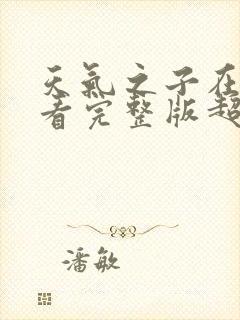 天氣之子在
看完整版超
潘敏